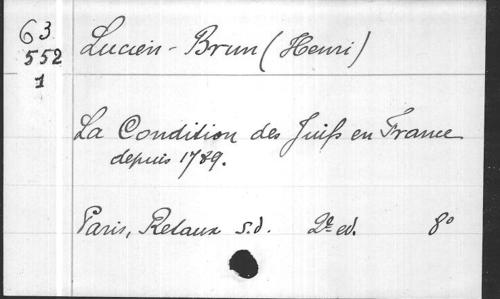 63
552
1
Lucien-Brun (Henri)
La Condition des Juifs en France
depuis 1789.
Paris, Retaux s.d. 2e ed. 8°